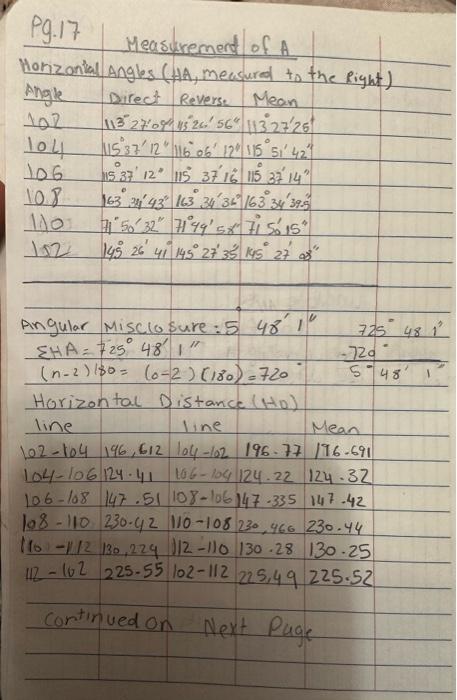 Pg.17
Measurement of A
Horizontal Angles (HA, measured to the Right)
Angle Direct Reverse Mean
102 113°27'09" 113°26'56" 113°27'25"
104 115°37'12" 116°06'12" 115°51'42"
106 115°37'12" 115°37'16 115°37'14"
108 163°34'43" 163°34'36" 163°34'39.5
110 71°50'32" 71°49'58" 71°50'15"
145°26'41 145°27'35 145°27'08"
Angular Misclosure: 5° 48' 1" 725° 48 1'
ΣHA = 725° 48' 1" -720°
(n-2)180 = (6-2)(180) = 720° 5° 48' 1"
Horizontal Distance (HD)
line line Mean
102-104 196,612 104-102 196.77 196.691
104-106 124.41 106-104 124.22 124.32
106-108 147.51 108-106 147.335 147.42
108-110 230.42 110-108 230,466 230.44
110-112 130,224 112-110 130.28 130.25
112-102 225.55 102-112 225,49 225.52
Continued on Next Page